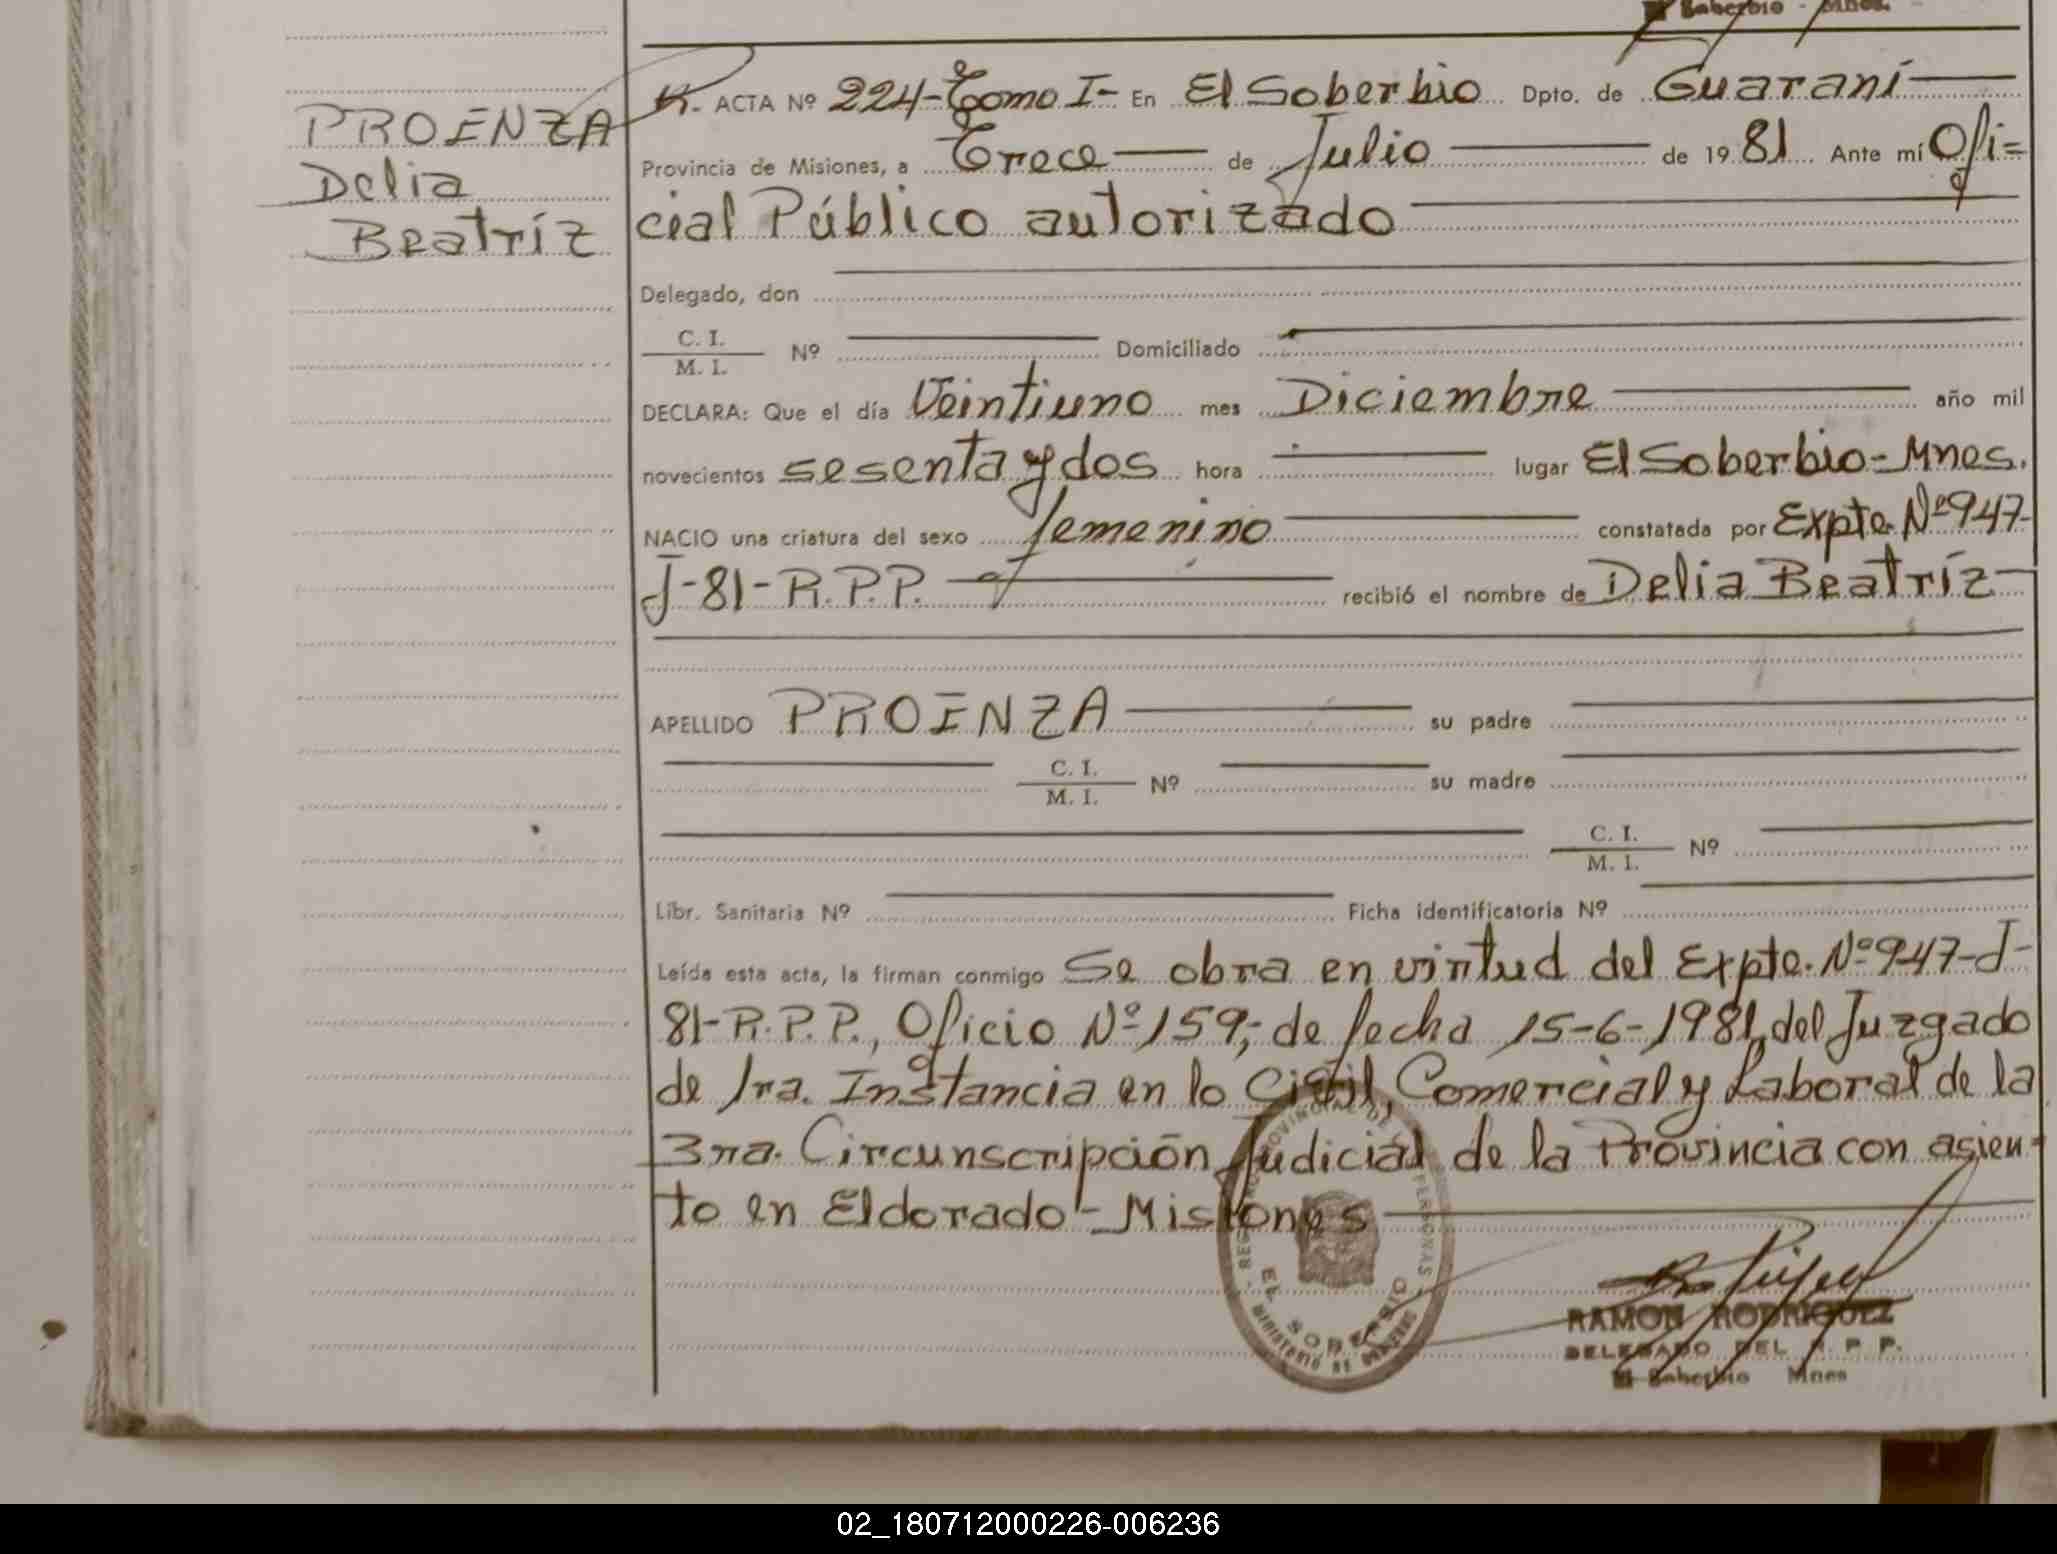 El Soberbio - Mnes.
PROENZA
Delia
Beatríz
ACTA Nº 224-Tomo I- En El Soberbio Dpto. de Guaraní
Provincia de Misiones, a Trece de Julio de 1981 Ante mí Ofi=
cial Público autorizado
Delegado, don
C. I.
M. I. Nº Domiciliado
DECLARA: Que el día Veintiuno mes Diciembre año mil
novecientos sesenta y dos hora lugar El Soberbio-Mnes.
NACIO una criatura del sexo femenino constatada por Expte. Nº 947-
J-81-R.P.P. recibió el nombre de Delia Beatríz
APELLIDO PROENZA su padre
C. I.
M. I. Nº su madre
C. I.
M. I. Nº
Libr. Sanitaria Nº Ficha identificatoria Nº
Leída esta acta, la firman conmigo Se obra en virtud del Expte. Nº 947-J-
81-R.P.P., Oficio Nº 159,- de fecha 15-6-1981, del Juzgado
de 1ra. Instancia en lo Civil, Comercial y Laboral de la
3ra. Circunscripción Judicial de la Provincia con asien-
to en Eldorado-Misiones
REG. PROVINCIAL DE PERSONAS
EL SOBERBIO
MINISTERIO DE GOBIERNO
RAMON RODRIGUEZ
DELEGADO DEL R. P. P.
El Soberbio Mnes
02_180712000226-006236